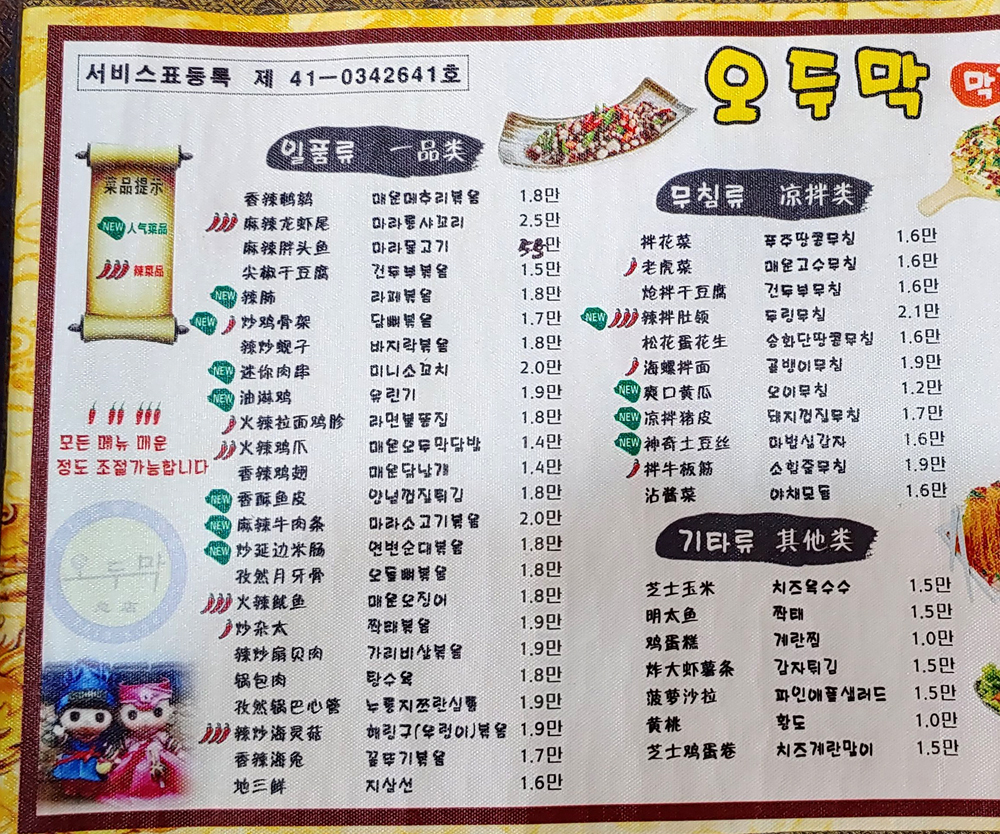 서비스표등록 제 41-0342641호
오두막
막
菜品提示
NEW 人气菜品
辣菜品
모든 메뉴 매운
정도 조절가능합니다
오두막
总店
일품류 一品类
香辣鹌鹑 매운메추리볶음 1.8만
麻辣龙虾尾 마라롱샤꼬리 2.5만
麻辣胖头鱼 마라물고기 만
尖椒干豆腐 건두부볶음 1.5만
NEW 辣肺 라페볶음 1.8만
NEW 炒鸡骨架 닭뼈볶음 1.7만
辣炒蚬子 바지락볶음 1.8만
NEW 迷你肉串 미니소꼬치 2.0만
NEW 油淋鸡 유린기 1.9만
火辣拉面鸡胗 라면불똥집 1.8만
火辣鸡爪 매운오두막닭발 1.4만
香辣鸡翅 매운닭날개 1.4만
NEW 香酥鱼皮 양념껍질튀김 1.8만
NEW 麻辣牛肉条 마라소고기볶음 2.0만
NEW 炒延边米肠 연변순대볶음 1.8만
孜然月牙骨 오돌뼈볶음 1.8만
火辣鱿鱼 매운오징어 1.8만
炒杂太 짝태볶음 1.9만
辣炒扇贝肉 가리비살볶음 1.9만
锅包肉 탕수육 1.8만
孜然锅巴心管 누룽지쯔란심통 1.9만
辣炒海灵菇 해링구(우렁이)볶음 1.9만
香辣海兔 꼴뚜기볶음 1.7만
地三鲜 지삼선 1.6만
무침류 凉拌类
拌花菜 푸주땅콩무침 1.6만
老虎菜 매운고수무침 1.6만
炝拌干豆腐 건두부무침 1.6만
NEW 辣拌肚领 두링무침 2.1만
松花蛋花生 송화단땅콩무침 1.6만
海螺拌面 골뱅이무침 1.9만
NEW 爽口黄瓜 오이무침 1.2만
NEW 凉拌猪皮 돼지껍질무침 1.7만
NEW 神奇土豆丝 마법실감자 1.6만
拌牛板筋 소힘줄무침 1.9만
沾酱菜 야채모듬 1.6만
기타류 其他类
芝士玉米 치즈옥수수 1.5만
明太鱼 짝태 1.5만
鸡蛋糕 계란찜 1.0만
炸大虾薯条 감자튀김 1.5만
菠萝沙拉 파인애플샐러드 1.5만
黄桃 황도 1.0만
芝士鸡蛋卷 치즈계란말이 1.5만